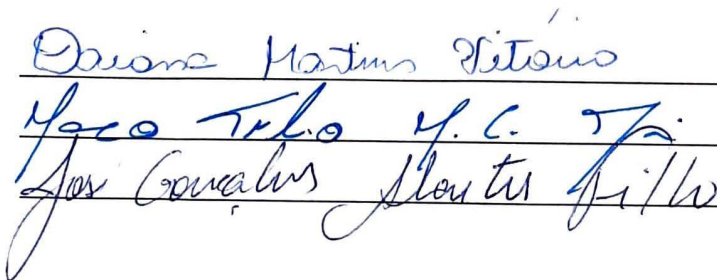 Daiana Martins Vitório
Marco Túlio M. C.
José Gonçalves Filho